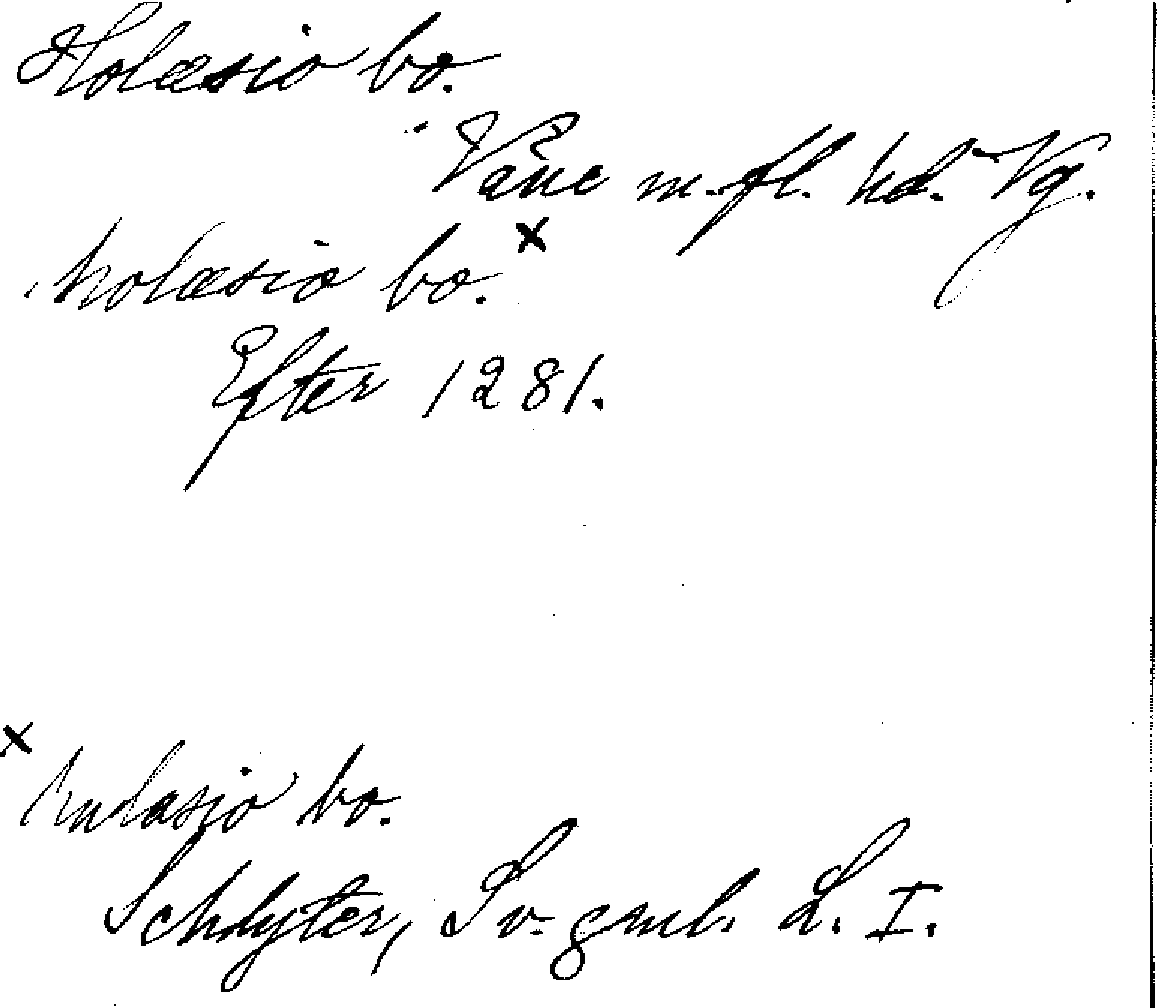 Holæsio bo.
Väne m. fl. hd. Vg.
holæsio bo. x
Efter 1281.
x hulasio bo.
Schlyter, Sv. gml. L. I.